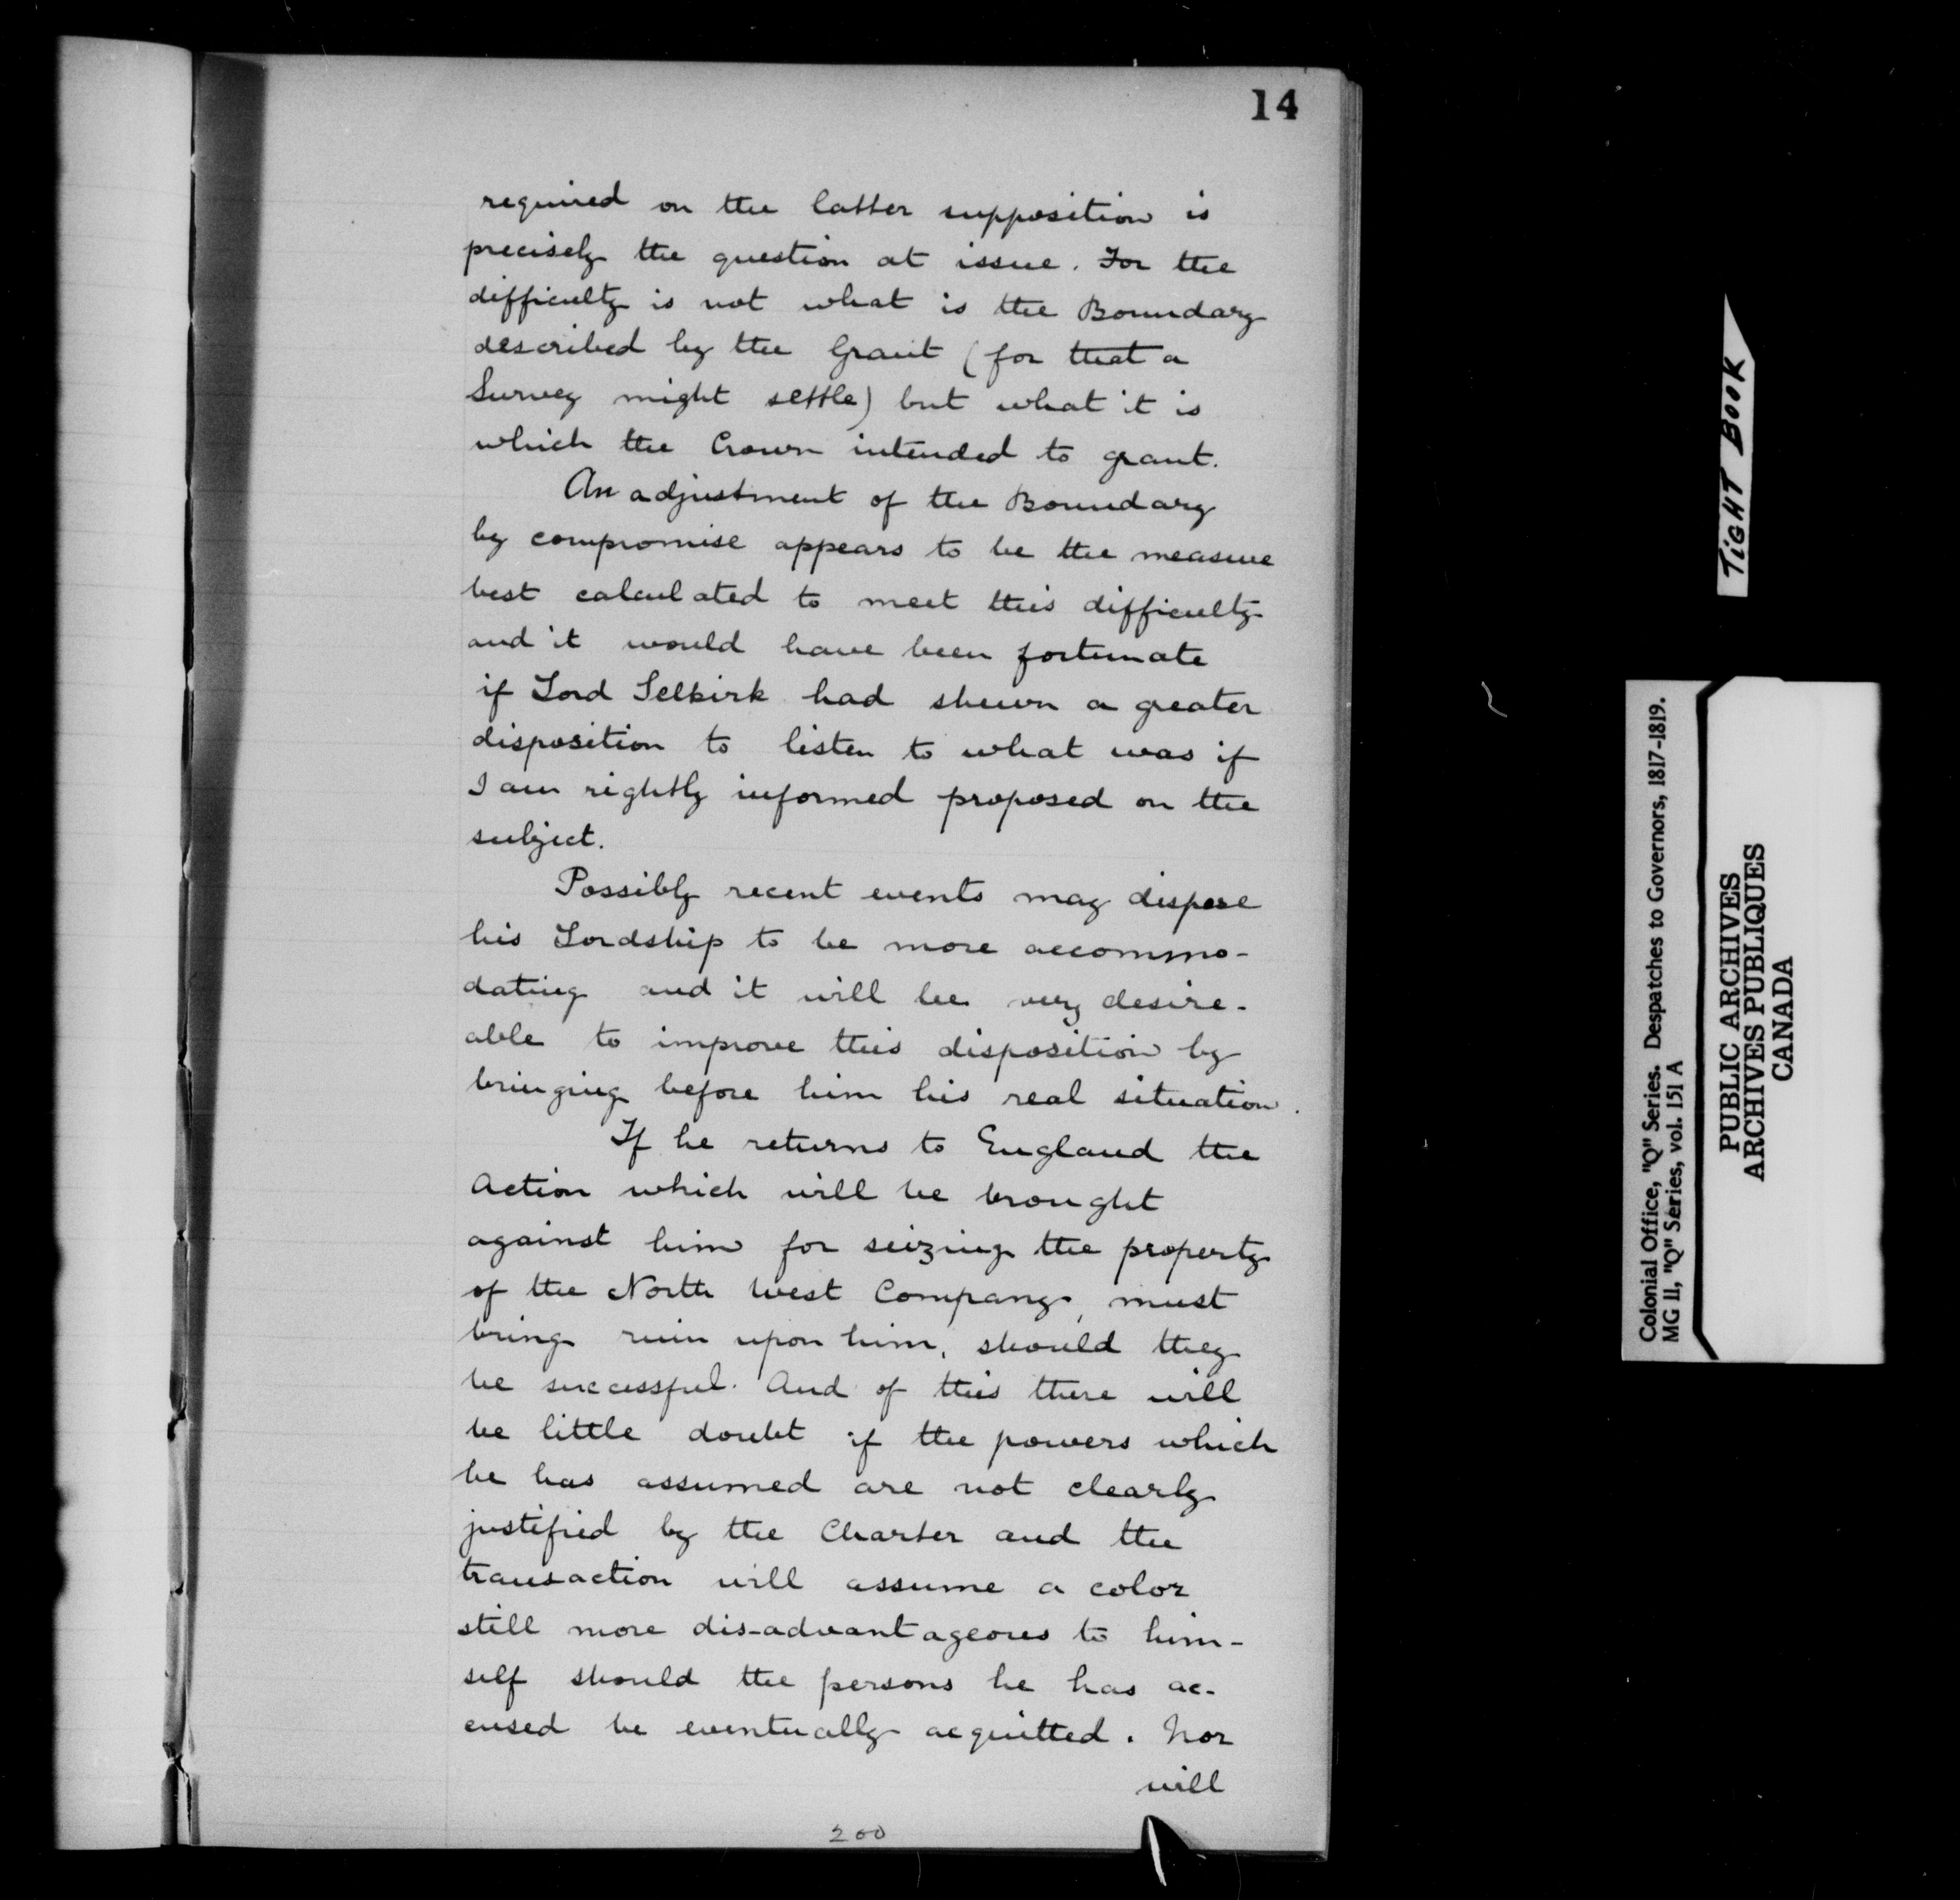 14
required on the latter supposition is
precisely the question at issue. For the
difficulty is not what is the Boundary
described by the Grant (for that a
Survey might settle) but what it is
which the Crown intended to grant.
An adjustment of the Boundary
by compromise appears to be the measure
best calculated to meet this difficulty
and it would have been fortunate
if Lord Selkirk had shewn a greater
disposition to listen to what was if
I am rightly informed proposed on the
subject.
Possibly recent events may dispose
his Lordship to be more accommo-
dating and it will be very desire-
able to improve this disposition by
bringing before him his real situation.
If he returns to England the
Action which will be brought
against him for seizing the property
of the North West Company, must
bring ruin upon him, should they
be successful. And of this there will
be little doubt if the powers which
he has assumed are not clearly
justified by the Charter and the
transaction will assume a color
still more dis-advantageous to him-
self should the persons he has ac-
cused be eventually acquitted. Nor
will
200
TIGHT BOOK
Colonial Office, "Q" Series. Despatches to Governors, 1817-1819.
MG 11, "Q" Series, vol. 151 A
PUBLIC ARCHIVES
ARCHIVES PUBLIQUES
CANADA